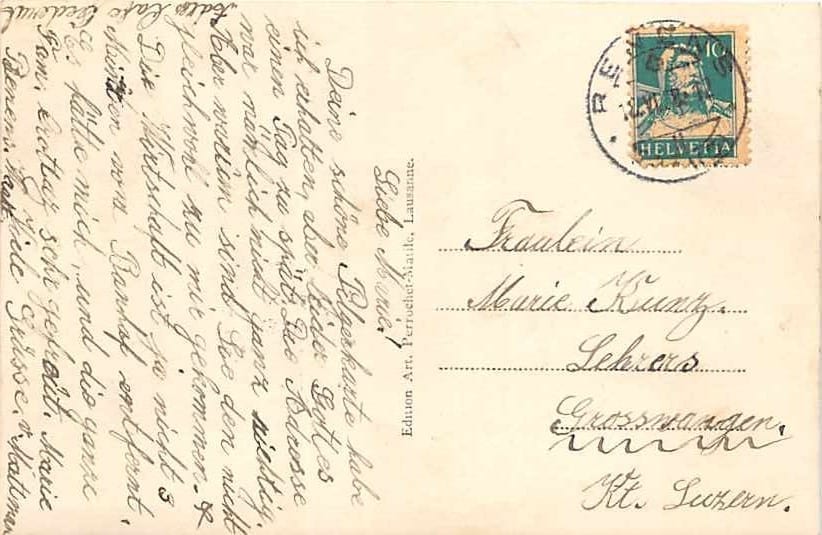 Liebe Marie!
Deine schöne Pilgerkarte habe
ich erhalten, aber leider Gottes
einen Tag zu spät. Die Adresse
war nämlich nicht ganz richtig.
Aber warum sind Sie den nicht
gleichwohl zu mir gekommen. &
Die Wirtschaft ist ja nicht 3
Minuten vom Banhof entfernt.
Es hätte mich, und die ganze
sehr gefreut. Marie
Viele Grüsse, v.
Edition Art. Perrochet-Matile, Lausanne.
RENENS
10
HELVETIA
Fräulein
Marie Kunz.
Lehrers
Grosswangen.
Kt. Luzern.